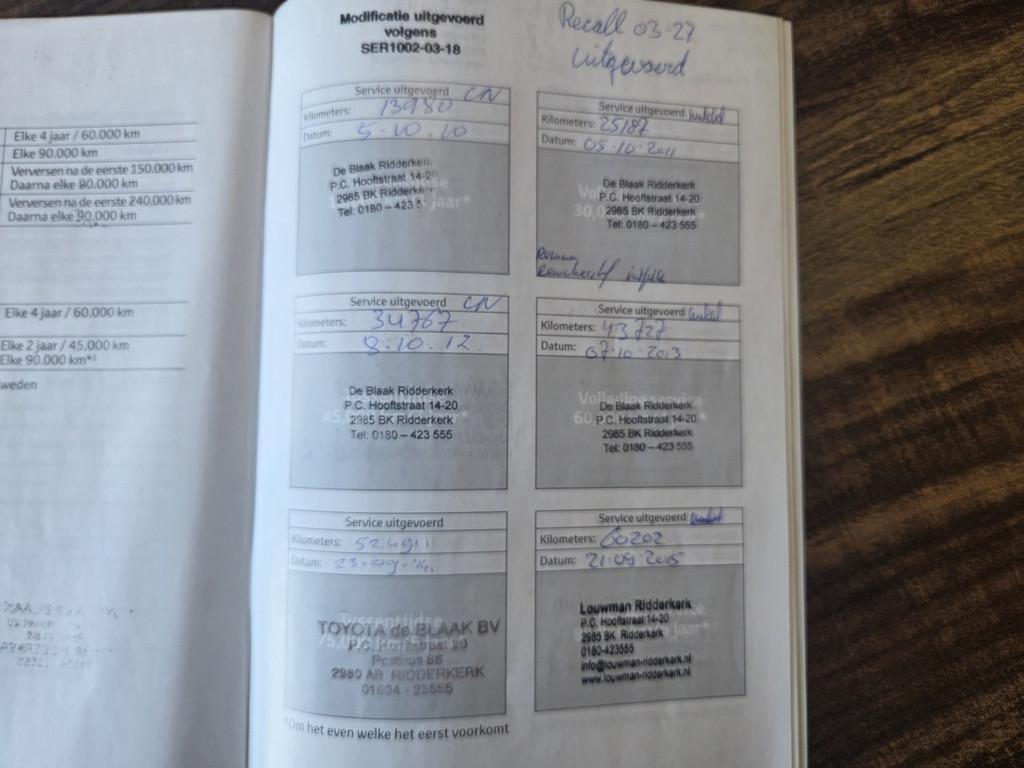 Elke 4 jaar / 60.000 km
Elke 90.000 km
Verversen na de eerste 150.000 km
Daarna elke 90.000 km
Verversen na de eerste 240.000 km
Daarna elke 90.000 km
Elke 4 jaar / 60.000 km
Elke 2 jaar / 45.000 km
Elke 90.000 km*
weden
Modificatie uitgevoerd
volgens
SER1002-03-18
Recall 03-27
Uitgevoerd
Service uitgevoerd CN
Kilometers: 13980
Datum: 5.10.10
De Blaak Ridderkerk
P.C. Hooftstraat 14-20
2985 BK Ridderkerk
Tel: 0180 – 423 5
jaar*
Service uitgevoerd
Kilometers: 25187
Datum: 05.10.2011
De Blaak Ridderkerk
P.C. Hooftstraat 14-20
2985 BK Ridderkerk
Tel: 0180 – 423 555
Service uitgevoerd CN
Kilometers: 34767
Datum: 8.10.12.
De Blaak Ridderkerk
P.C. Hooftstraat 14-20
2985 BK Ridderkerk
Tel: 0180 – 423 555
Service uitgevoerd
Kilometers: 43727
Datum: 07.10.2013
Volledige service
De Blaak Ridderkerk
P.C. Hooftstraat 14-20
2985 BK Ridderkerk
Tel: 0180 – 423 555
Service uitgevoerd
Kilometers: 52.491
Datum: 23-09-'14.
Tussentijdse
TOYOTA de BLAAK BV
P.C. Hooftstraat 20
Postbus 66
2980 AB RIDDERKERK
01804 - 23555
Service uitgevoerd
Kilometers: 60202
Datum: 21.09.2015
Louwman Ridderkerk
P.C. Hooftstraat 14-20
2985 BK Ridderkerk
0180-423555
info@louwman-ridderkerk.nl
www.louwman-ridderkerk.nl
*Om het even welke het eerst voorkomt